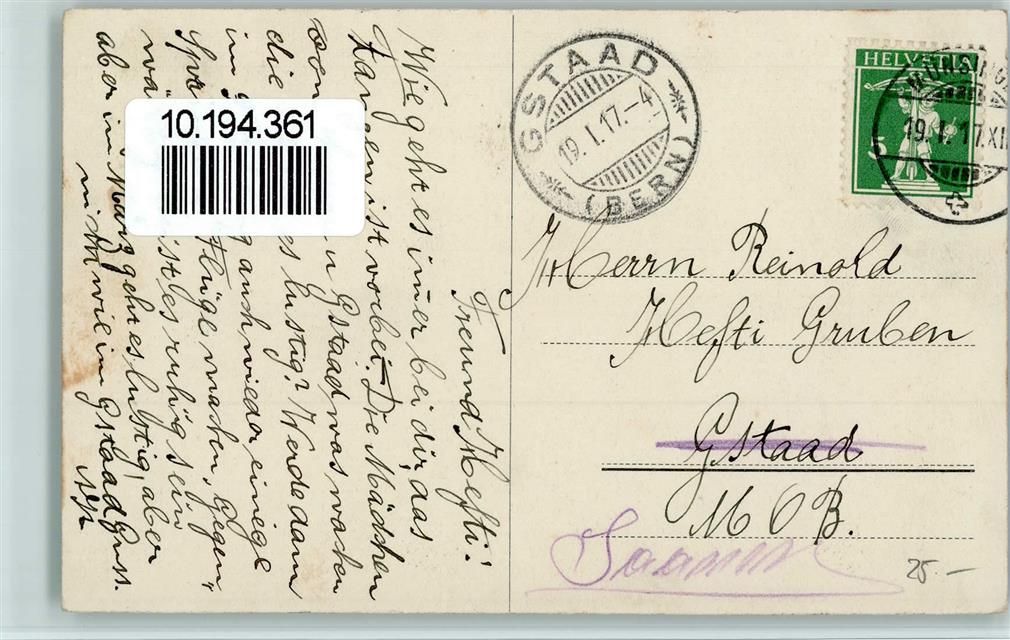 Freund Hefti!
Wie geht es imer bei dir, das
Tanzen ist vorbei. Die Mädchen
von Gstaad was machen
die es lustig? Werde dann
im auch wieder einige
Flüge machen, Gegen-
wä ist es ruhig sein
aber im März geht es lustig, aber
nicht wie im Gstaad Gruss.
10.194.361
GSTAAD
19. I. 17. - 4
(BERN)
HELVETIA
5
19. I. 17. XI
Herrn Reinold
Hefti Gruben
Gstaad
M O B.
Saanen
25 -